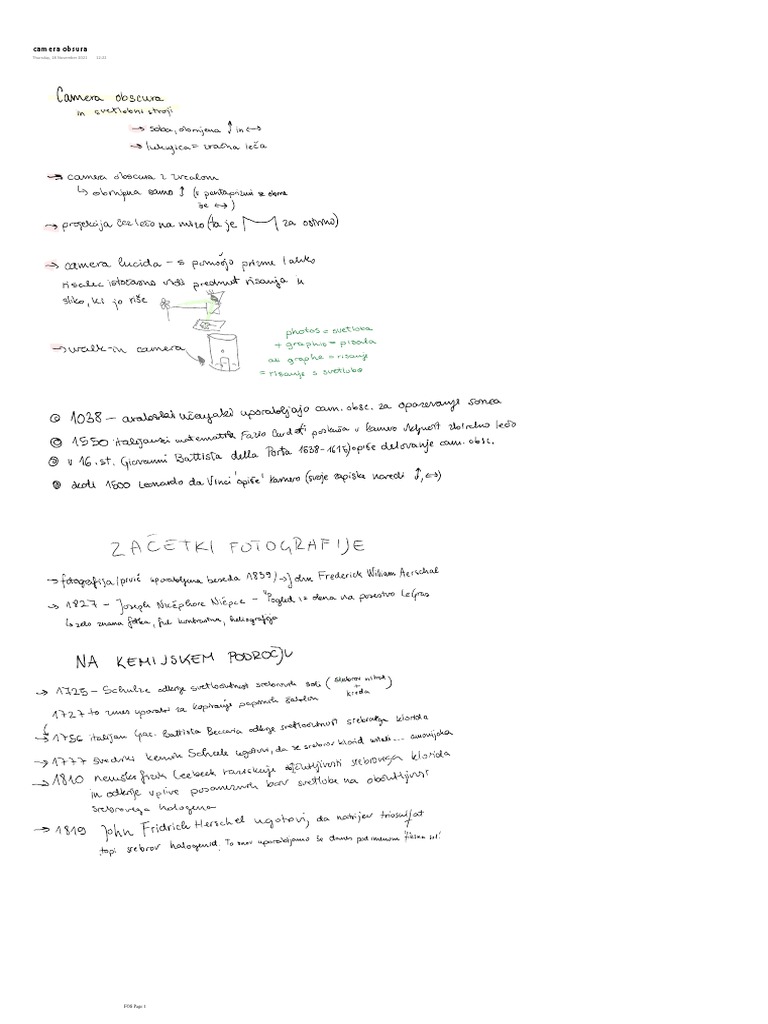 camera obsura
Thursday, 18 November 2021 12:21
Camera obscura
in svetlobni stroji
→ soba, obrnjena ↑ in ↔
→ luknjica = zračna leča
→ camera obscura z zrcalom
↳ obrnjena samo ↑ (s pentaprizmi se obrne
še ↔)
→ projekcija čez lečo na mizo (ta je za ostrino)
→ camera lucida – s pomočjo prizme lahko
risalec istočasno vidi predmet risanja in
sliko, ki jo riše
→ walk-in camera
photos = svetloba
+ graphio = pisala
ali graphe = risanje
= risanje s svetlobo
1038 – arabski učenjaki uporabljajo cam. obsc. za opazovanje sonca
1550 italijanski matematik Fazio Cardi poskuša v kamero vključit zbiralno lečo
v 16. st. Giovanni Battista della Porta 1538-1615) opiše delovanje cam. obsc.
okoli 1500 Leonardo da Vinci 'opiše' kamero (svoje zapiske naredi ↑, ↔)
ZAČETKI FOTOGRAFIJE
→ fotografija /prvič uporabljena beseda 1839/ → John Frederick William Herschel
→ 1827 – Joseph Nicéphore Niépce – "Pogled iz okna na posestvo LeGras
↳ zelo znana fotka, ful kontrastna, heliografija
NA KEMIJSKEM PODROČJU
→ 1725 – Schulze odkrije svetločutnost srebrovih soli (srebrov nitrat
+
kreda)
1727 to zmes uporabi za kopiranje papirnih šablon
→ 1756 italijan Giac. Battista Beccaria odkrije svetločutnost srebrovega klorida
→ 1777 švedski kemik Scheele ugotovi, da se srebrov klorid ... amonijaka
→ 1810 nemški fizik Seebeck raziskuje občutljivosti srebrovega klorida
in odkrije vplive posameznih barv svetlobe na občutljivost
srebrovega halogena
→ 1819 John Fridrich Herschel ugotovi, da natrijev tiosulfat
topi srebrov halogenid. To snov uporabljamo še danes pod imenom "fiksirna sol."
FOS Page 1